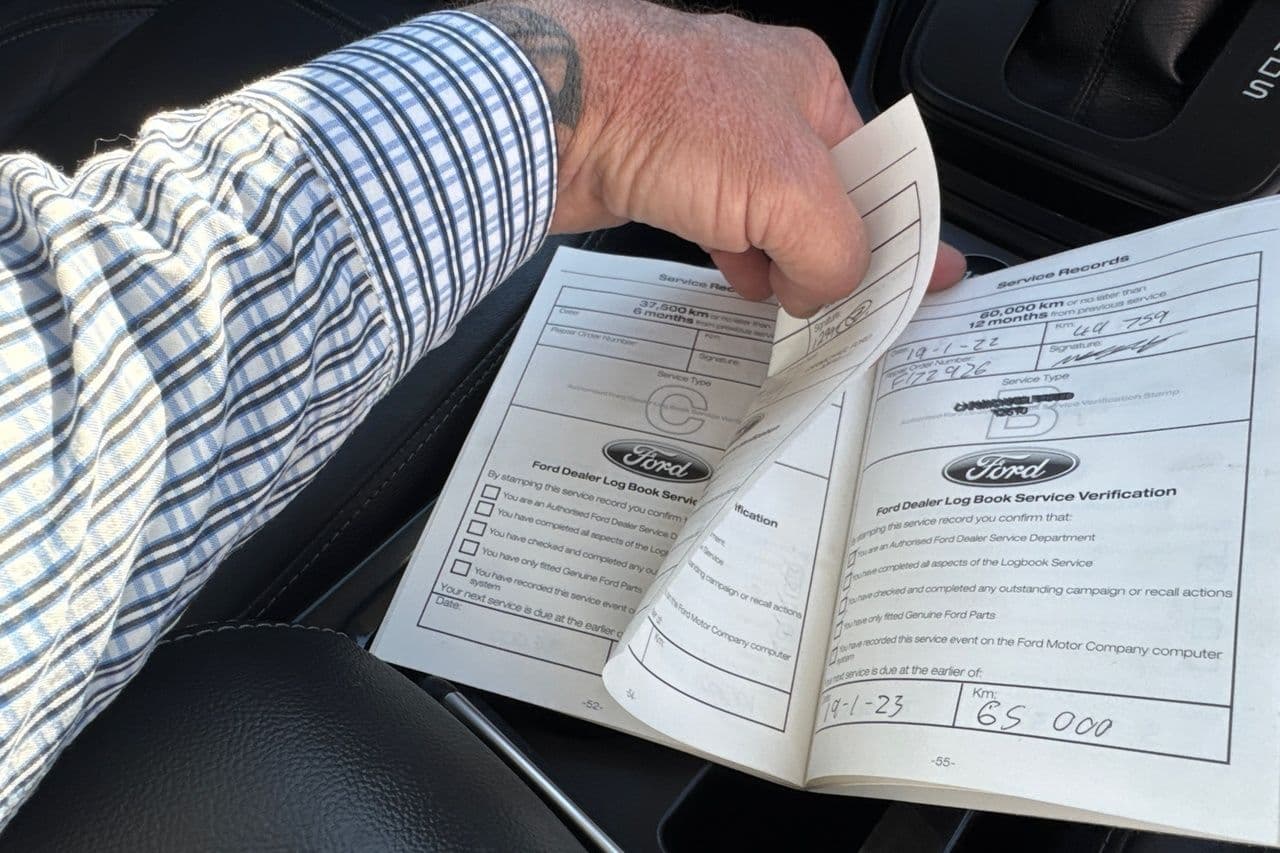 Service Rec
37,500 km or no later than
6 months from previous service
Date
Km:
Repair Order Number:
Signature:
Service Type
C
Ford
Ford Dealer Log Book Servic
By stamping this service record you confirm t
You are an Authorised Ford Dealer Service D
You have completed all aspects of the Log
You have checked and completed any ou
You have only fitted Genuine Ford Parts
You have recorded this service event o
system
Your next service is due at the earlier o
Date:
-52-
Signature:
ification
ment
Service
anding campaign or recall actions
the Ford Motor Company computer
Km
Service Records
60,000 km or no later than
12 months from previous service
Date
19-1-22
Km:
49 759
Repair Order Number:
F172926
Signature:
Service Type
B
Authorised Ford Dealer Service Verification Stamp
Ford
Ford Dealer Log Book Service Verification
stamping this service record you confirm that:
You are an Authorised Ford Dealer Service Department
You have completed all aspects of the Logbook Service
You have checked and completed any outstanding campaign or recall actions
You have only fitted Genuine Ford Parts
You have recorded this service event on the Ford Motor Company computer
system
next service is due at the earlier of:
19-1-23
Km:
65 000
-55-
D
S